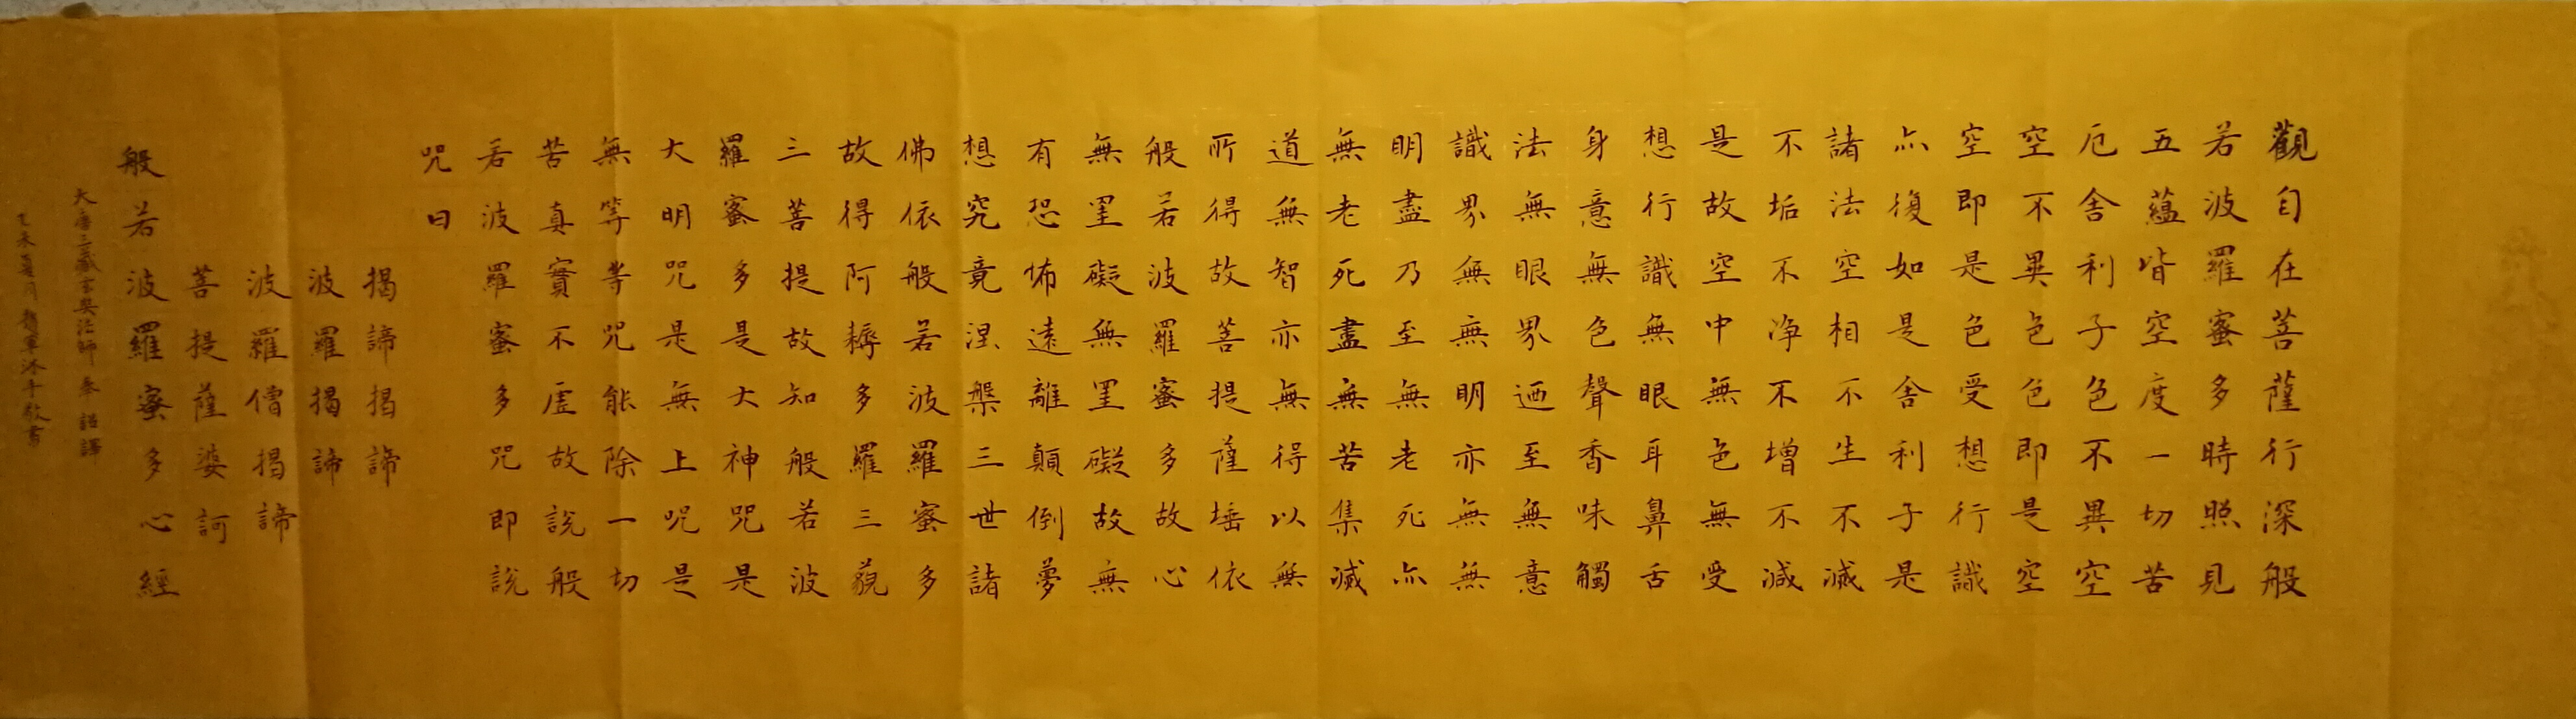 觀自在菩薩行深般
若波羅蜜多時照見
五蘊皆空度一切苦
厄舍利子色不異空
空不異色色即是空
空即是色受想行識
亦復如是舍利子是
諸法空相不生不滅
不垢不净不增不減
是故空中無色無受
想行識無眼耳鼻舌
身意無色聲香味觸
法無眼界迺至無意
識界無無明亦無無
明盡乃至無老死亦
無老死盡無苦集滅
道無智亦無得以無
所得故菩提薩埵依
般若波羅蜜多故心
無罣礙無罣礙故無
有恐怖遠離顛倒夢
想究竟涅槃三世諸
佛依般若波羅蜜多
故得阿耨多羅三藐
三菩提故知般若波
羅蜜多是大神咒是
大明咒是無上咒是
無等等咒能除一切
苦真實不虛故說般
若波羅蜜多咒即說
咒曰
揭諦揭諦
波羅揭諦
波羅僧揭諦
菩提薩婆訶
般若波羅蜜多心經
大唐三藏玄奘法師奉詔譯
乙未夏月 軍沐手敬書